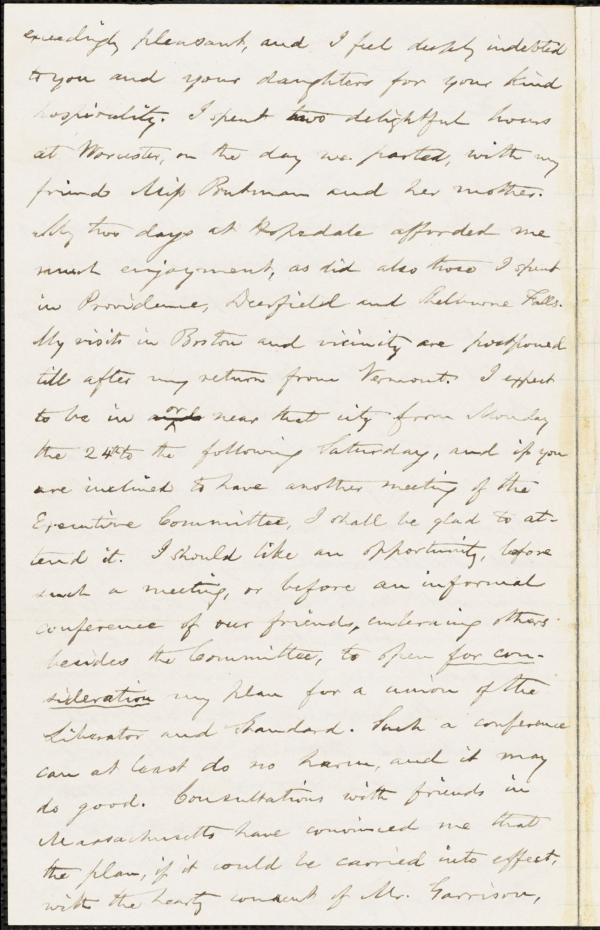 exceedingly pleasant, and I feel deeply indebted
to you and your daughters for your kind
hospitality. I spent two delightful hours
at Worcester, on the day we parted, with my
friend Miss Putnam and her mother.
My two days at Hopedale afforded me
much enjoyment, as did also those I spent
in Providence, Deerfield and Shelburne Falls.
My visits in Boston and vicinity are postponed
till after my return from Vermont. I expect
to be in or near that city from Monday
the 24th to the following Saturday, and if you
are inclined to have another meeting of the
Executive Committee, I shall be glad to at-
tend it. I should like an opportunity, before
such a meeting, or before an informal
conference of our friends, embracing others
besides the Committee, to open for con-
sideration my plan for a union of the
Liberator and Standard. Such a conference
can at least do no harm, and it may
do good. Consultations with friends in
Massachusetts have convinced me that
the plan, if it could be carried into effect,
with the hearty consent of Mr. Garrison,